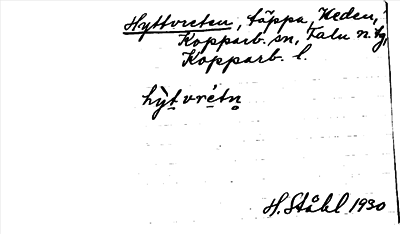 Hyttvreten, täppa, Heden,
Kopparb. sn, Falu n. tg,
Kopparb. l.
hỳt vrétn̥
H. Ståhl 1930